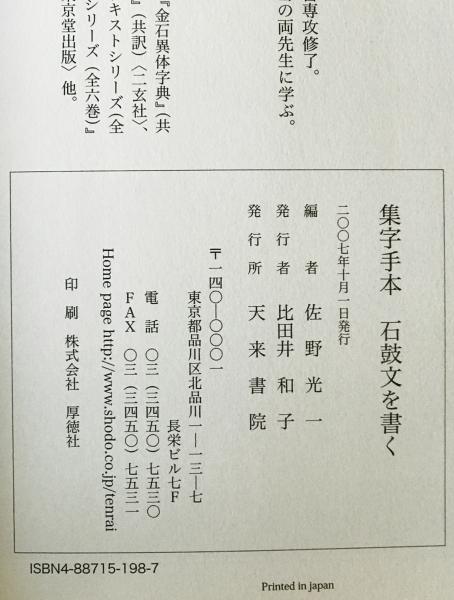 専攻修了。
の両先生に学ぶ。
『金石異体字典』（共
』（共訳）〈二玄社〉、
キストシリーズ（全
シリーズ（全六巻）』
京堂出版〉他。
集字手本　石鼓文を書く
二〇〇七年十月一日発行
編者　佐野光一
発行者　比田井和子
発行所　天来書院
〒一四〇―〇〇〇一
東京都品川区北品川一―一三―七
長栄ビル七F
電話　〇三（三四五〇）七五三〇
FAX　〇三（三四五〇）七五三一
Home page http://www.shodo.co.jp/tenrai
印刷　株式会社　厚徳社
ISBN4-88715-198-7
Printed in japan